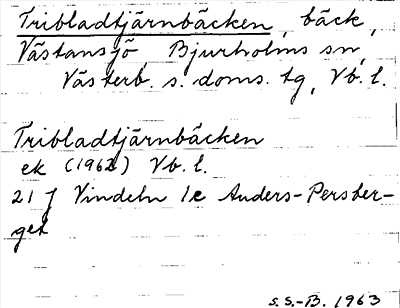 Tribladtjärnbäcken, bäck,
Västansjö Bjurholms sn,
Västerb. s. doms. tg, Vb. l.
Tribladtjärnbäcken
ek (1962) Vb. l.
21 J Vindeln 1c Anders-Persber-
get
S.S.-B. 1963